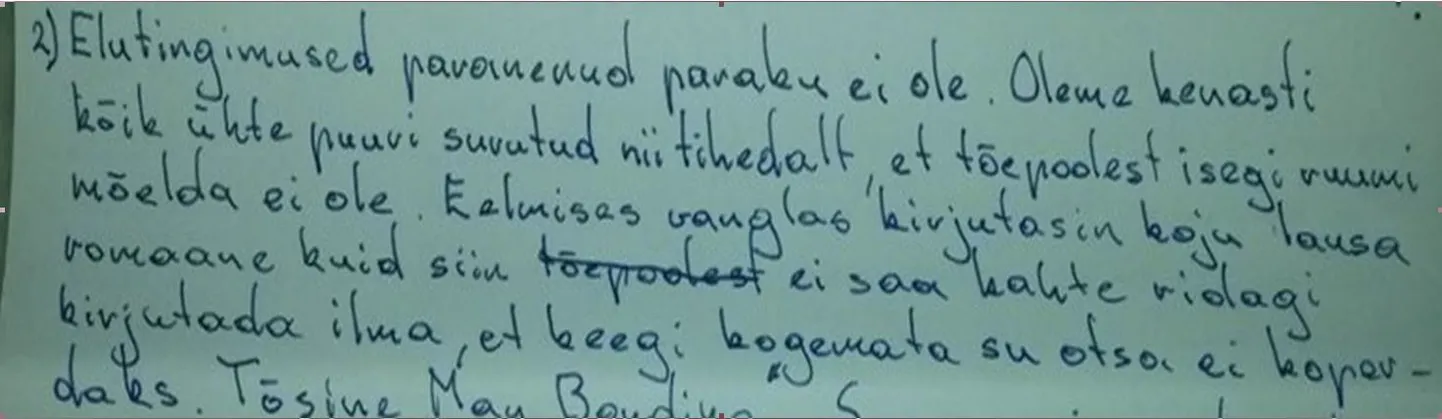 2) Elutingimused paranenud paraku ei ole. Oleme kenasti
kõik ühte puuri surutud nii tihedalt, et tõepoolest isegi ruumi
mõelda ei ole. Eelmises vanglas kirjutasin koju lausa
romaane kuid siin tõepoolest ei saa kahte ridagi
kirjutada ilma, et keegi kogemata su otsa ei koper-
daks. Tõsine Man